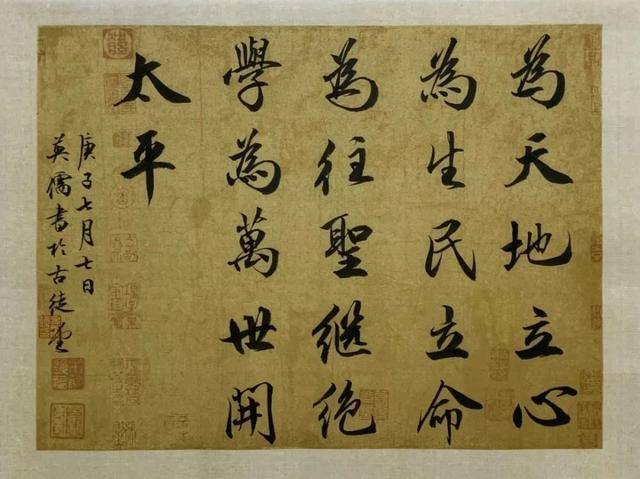 為天地立心
為生民立命
為往聖继绝
學為萬世開
太平
庚子七月七日
英儒書於古徒堂